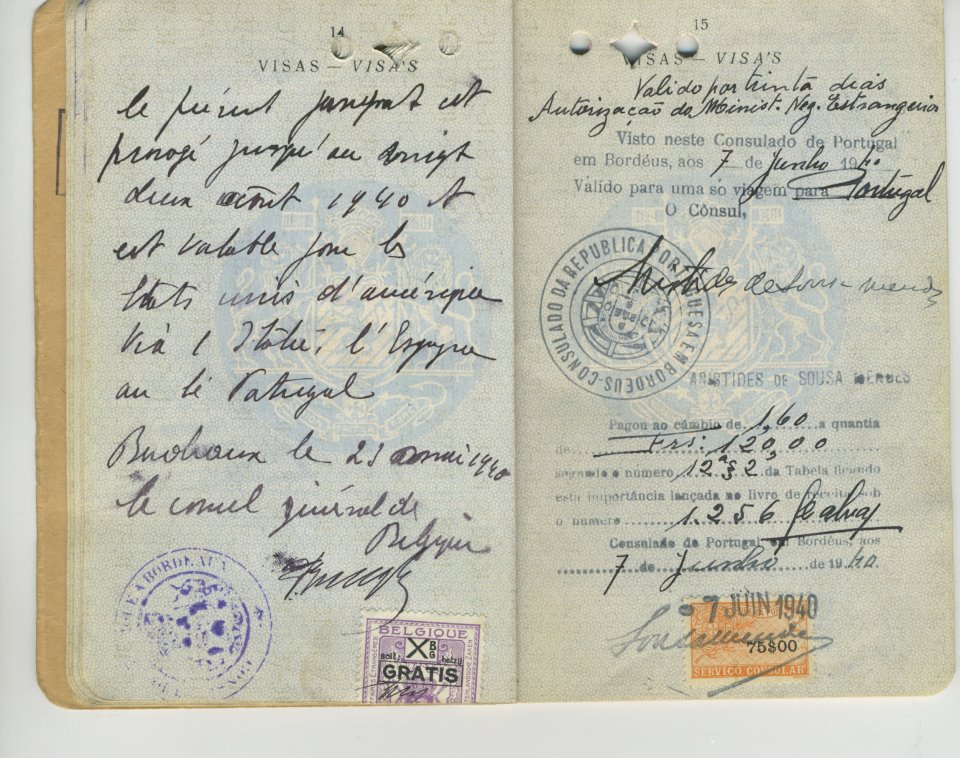 14
VISAS — VISA'S
le présent passeport est
prorogé jusqu'au vingt
deux août 1940 et
est valable pour les
Etats unis d'amérique
Via l'Italie, l'Espagne
ou le Portugal
Bordeaux le 23 mai 1940
le consul général de
Belgique
A BORDEAUX
BELGIQUE
X BG
soit hetzij
GRATIS
15
VISAS — VISA'S
Valido por trinta dias
Autorização do Minist. Neg. Estrangeiros
Visto neste Consulado de Portugal
em Bordéus, aos 7 de Junho 1940
Válido para uma só viagem para Portugal
O Cônsul,
Aristides de Sousa Mendes
CONSULADO DA REPUBLICA PORTUGUESA EM BORDEUS
ARISTIDES DE SOUSA MENDES
Pagou ao câmbio de 1,60 a quantia
de Frs: 120,00
segundo o numero 12ª § 2º da Tabela ficando
esta importância lançada no livro de receita sob
o numero 1.256
Consulado de Portugal em Bordéus, aos
7 de Junho de 1940.
- 7 JUIN 1940
Sousa Mendes
75$00
SERVIÇO CONSULAR